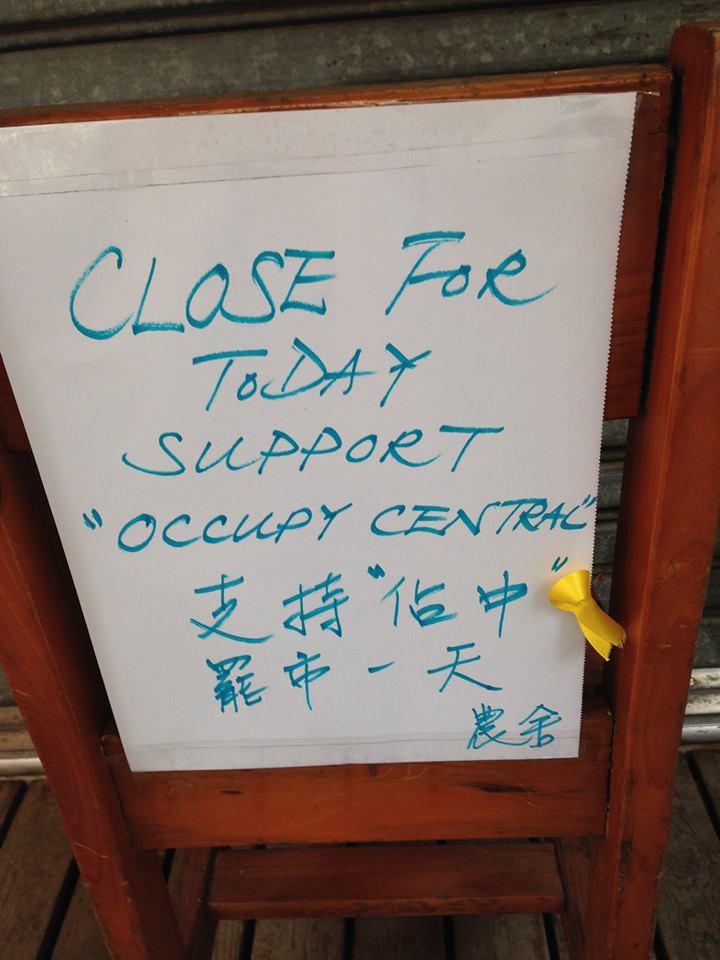 CLOSE FOR
TODAY
SUPPORT
"OCCUPY CENTRAL"
支持"佔中"
罷市一天
農舍